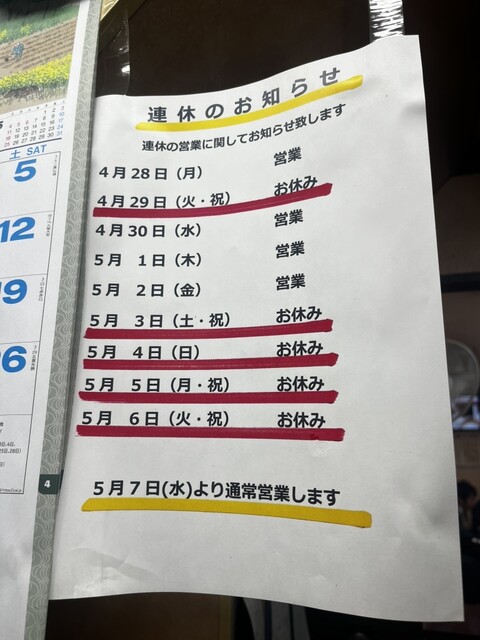 連休のお知らせ
連休の営業に関してお知らせ致します
4月28日（月） 営業
4月29日（火・祝） お休み
4月30日（水） 営業
5月 1日（木） 営業
5月 2日（金） 営業
5月 3日（土・祝） お休み
5月 4日（日） お休み
5月 5日（月・祝） お休み
5月 6日（火・祝） お休み
5月7日(水)より通常営業します
土 SAT
5
12
26
4